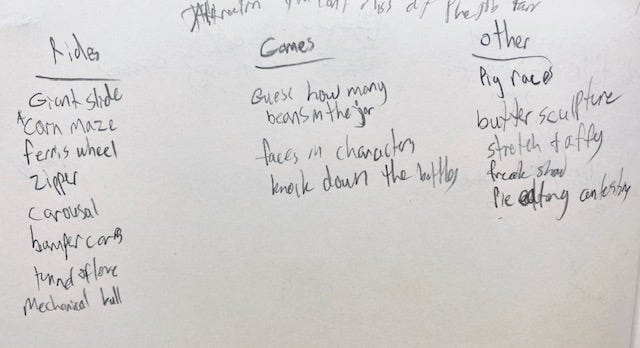 Attraction you can't miss at the fair
Rides
Giant slide
*Corn maze
ferris wheel
Zipper
Carousal
bumper cars
tunnel of love
Mechanical bull
Games
Guess how many
beans in the jar
faces in characters
knock down the bottles
Other
Pig races
butter sculpture
stretch taffy
freak show
Pie eating